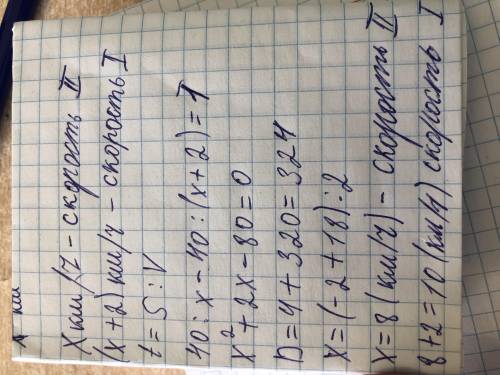 X км/ч – скорость II
(x+2) км/ч – скорость I
t = S : V
40 : x – 40 : (x+2) = 1
x² + 2x – 80 = 0
D = 4 + 320 = 324
X = (-2 + 18) : 2
X = 8 (км/ч) – скорость II
8 + 2 = 10 (км/ч) скорость I